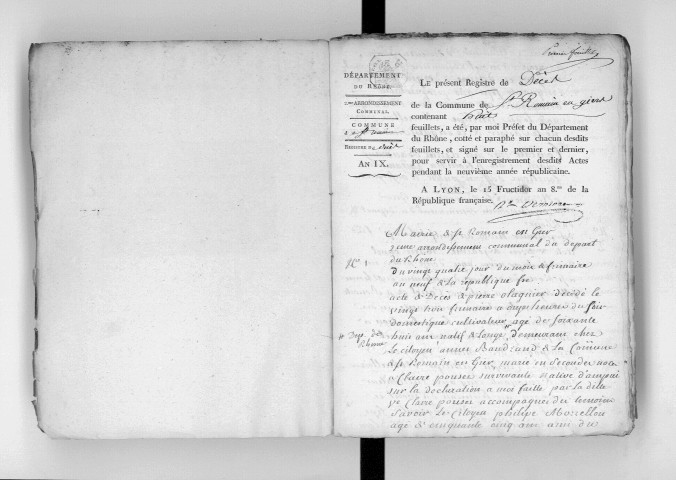 DÉPARTEMENT
DU RHÔNE.
ARRONDISSEMENT
COMMUNAL.
COMMUNE
REGISTRE DE décès
AN IX.
LE présent Registre de Décès
de la Commune de St Romain en giers
contenant huit
feuillets, a été, par moi Préfet du Département
du Rhône, cotté et paraphé sur chacun desdits
feuillets, et signé sur le premier et dernier,
pour servir à l'enregistrement desdits Actes
pendant la neuvième année républicaine.
A LYON, le 15 Fructidor an 8.me de la
République française.
Mairie de st Romain en Gier
arrondissement communal du depart
du Rhône
N° 1
Du vingt quatre jour du mois de frimaire
an neuf de la republique
acte de Deces de pierre decédé le
vingt trois frimaire a heures du soir
domestique cultivateur agé de soixante
huit ans natif de demeurant chez
Rhone
Le citoyen Baudrand de la Commune
de st Romain en Gier, marié en secondes noces
a Claire survivante native d'ampuis
sur la declaration a moi faitte par la ditte
Claire accompagnee des temoins
savoir Le Citoyen philipe
agé de cinquante cinq ans ami du